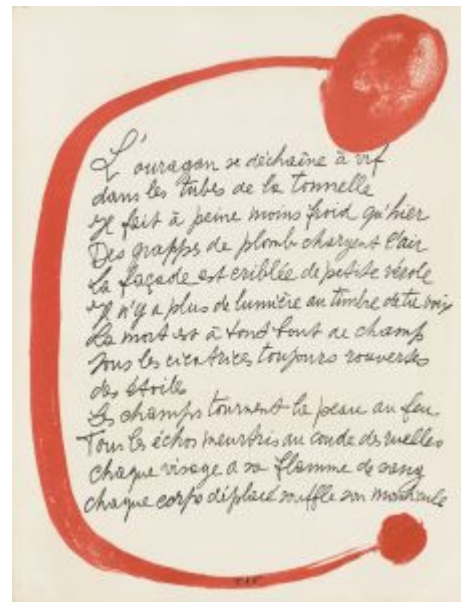 L'ouragan se déchaîne à vif
dans les tubes de la tonnelle
Il fait à peine moins froid qu'hier
Des grappes de plomb chargent l'air
La façade est criblée de petite vérole
Il n'y a plus de lumière au timbre de ta voix
La mort est à fond tout ce champ
Sous les cicatrices toujours rouvertes
des étoiles
Les champs tournent la peau au feu
Tous les échos meurtris au coude des ruelles
Chaque visage a sa flamme de sang
chaque corps déplacé souffle son